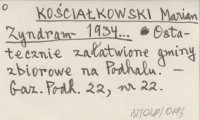 KOŚCIAŁKOWSKI Marian
Zyndram 1934... Osta-
tecznie załatwione gminy
zbiorowe na Podhalu. —
Gaz. Podh. 22, nr 22.